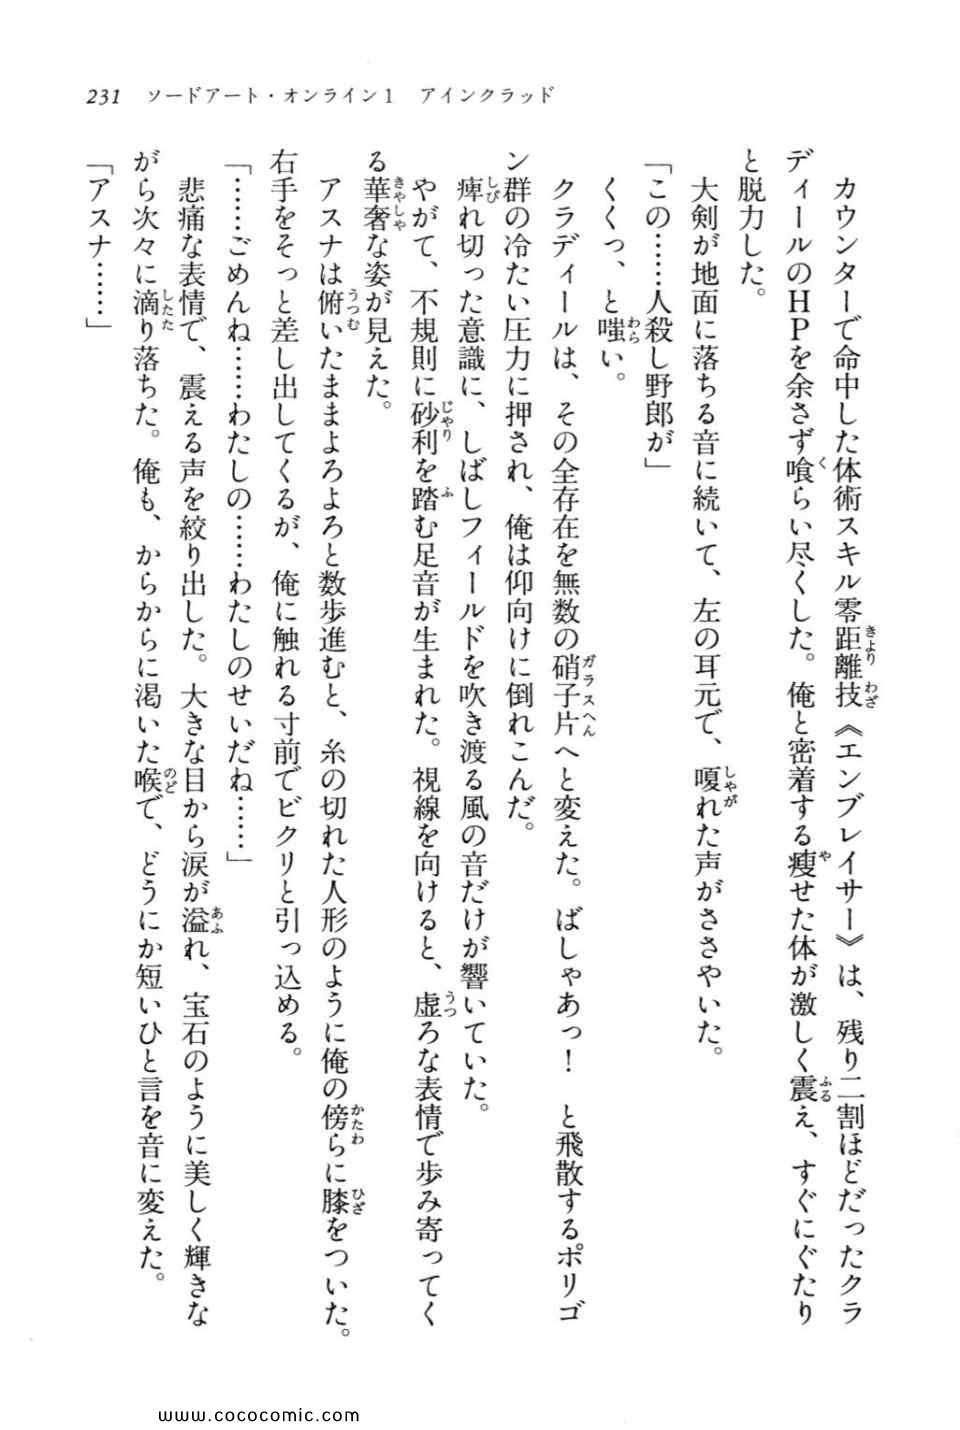 231　ソードアート・オンライン1　アインクラッド
　カウンターで命中した体術スキル零距離技《エンブレイサー》は、残り二割ほどだったクラ
ディールのHPを余さず喰らい尽くした。俺と密着する痩せた体が激しく震え、すぐにぐたり
と脱力した。
　大剣が地面に落ちる音に続いて、左の耳元で、嗄れた声がささやいた。
「この……人殺し野郎が」
　くくっ、と嗤い。
　クラディールは、その全存在を無数の硝子片へと変えた。ばしゃあっ！　と飛散するポリゴ
ン群の冷たい圧力に押され、俺は仰向けに倒れこんだ。
　痺れ切った意識に、しばしフィールドを吹き渡る風の音だけが響いていた。
　やがて、不規則に砂利を踏む足音が生まれた。視線を向けると、虚ろな表情で歩み寄ってく
る華奢な姿が見えた。
　アスナは俯いたままよろよろと数歩進むと、糸の切れた人形のように俺の傍らに膝をついた。
右手をそっと差し出してくるが、俺に触れる寸前でビクリと引っ込める。
「……ごめんね……わたしの……わたしのせいだね……」
　悲痛な表情で、震える声を絞り出した。大きな目から涙が溢れ、宝石のように美しく輝きな
がら次々に滴り落ちた。俺も、からからに渇いた喉で、どうにか短いひと言を音に変えた。
「アスナ……」
www.cococomic.com